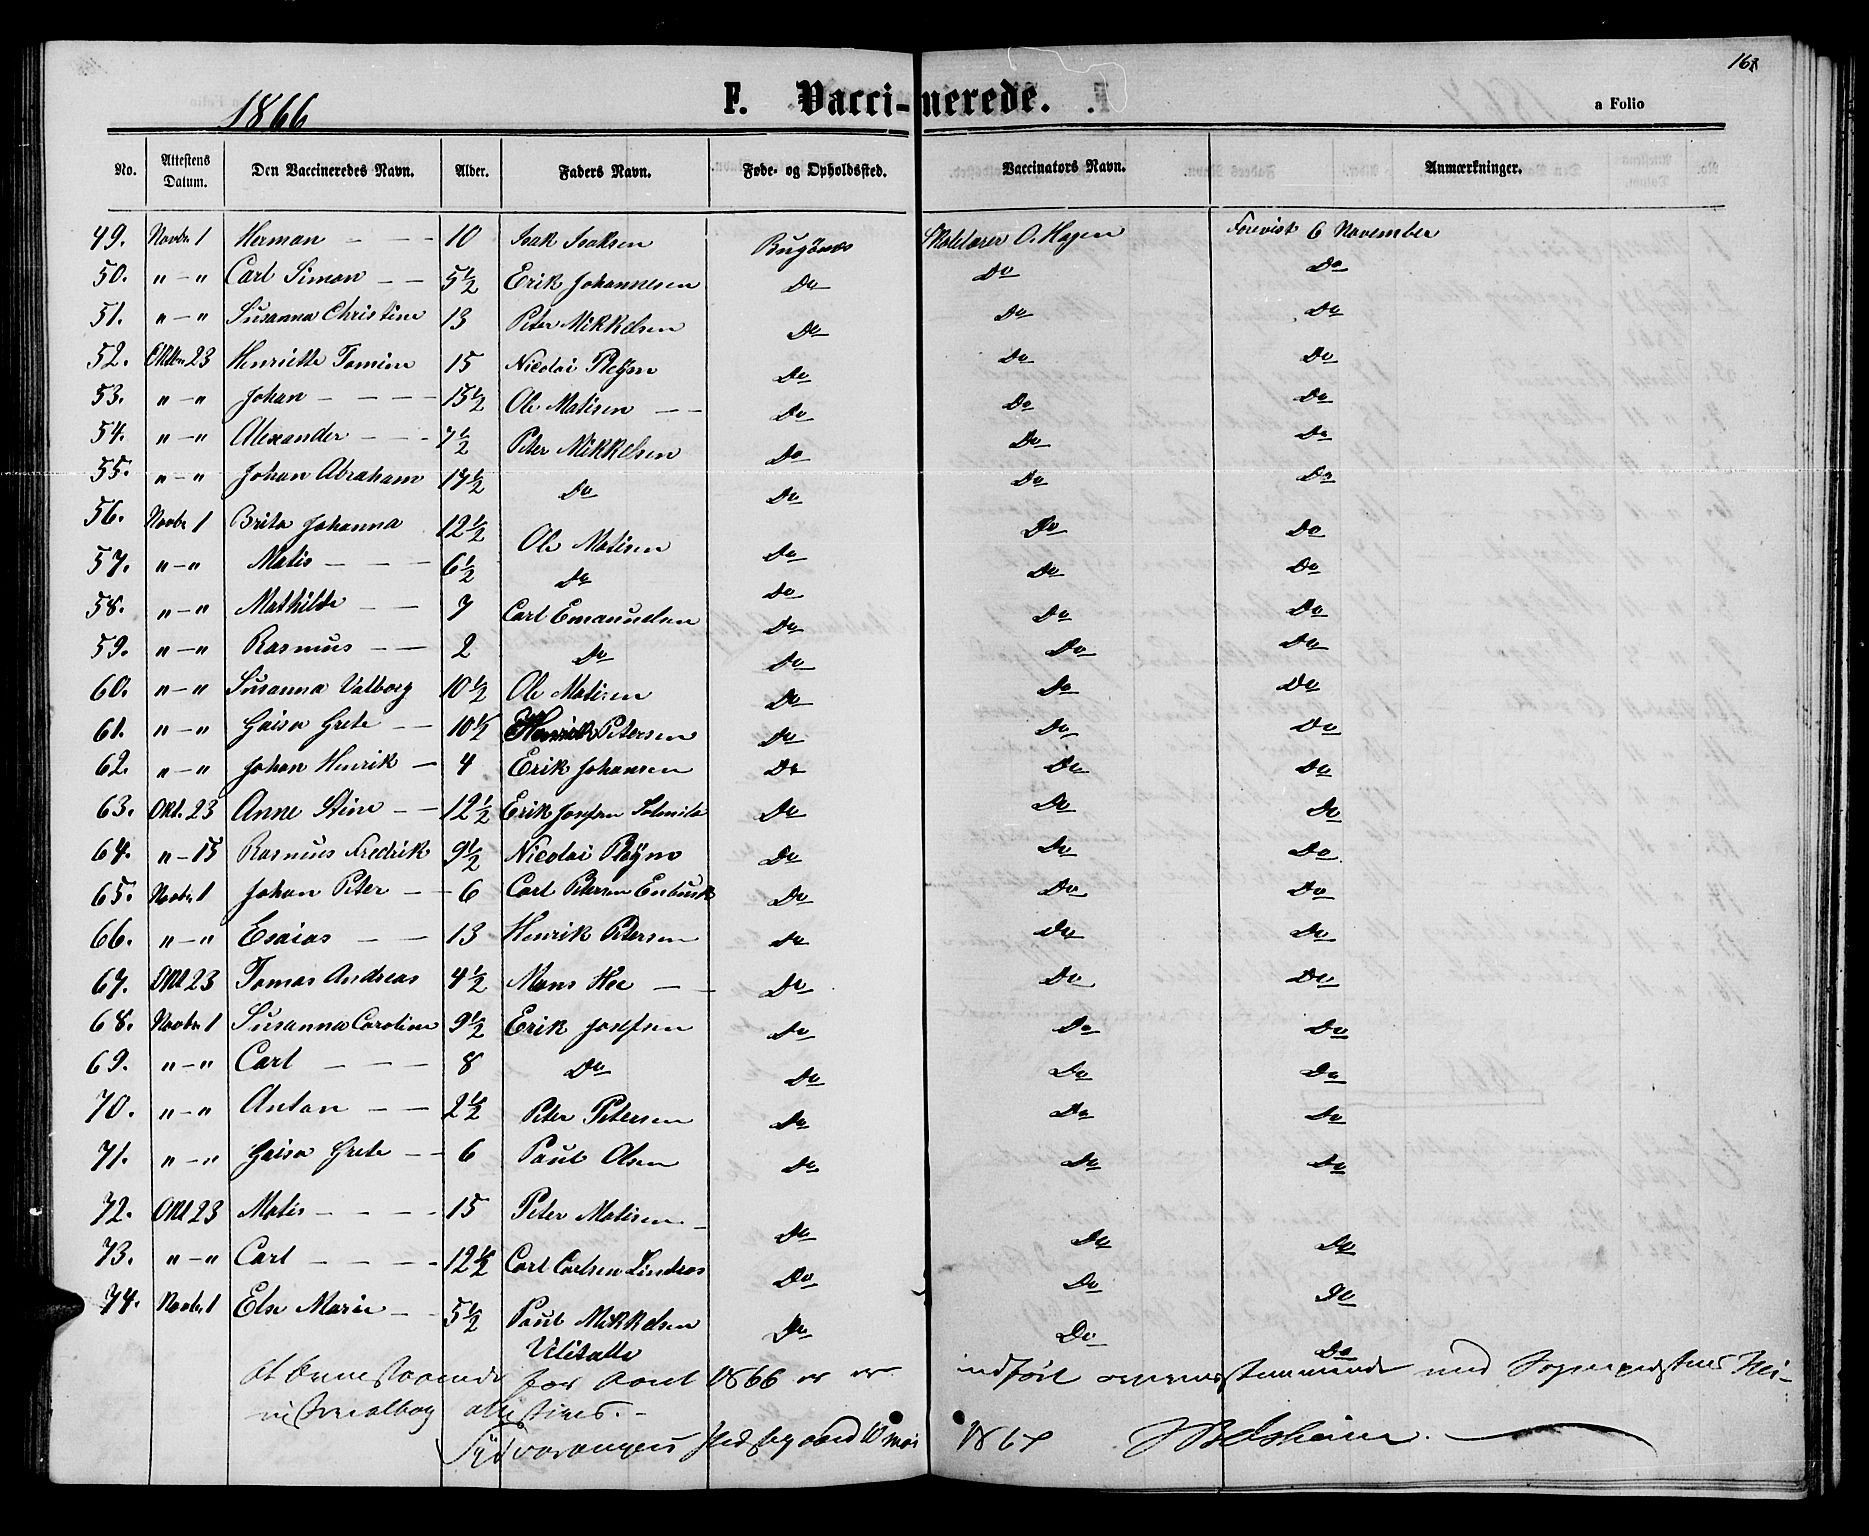 168
1866
F. Vacci-nerede.
a Folio
No. Attestens Datum. Den Vaccineredes Navn. Alder. Faders Navn. Føde- og Opholdssted. Vaccinators Navn. Anmærkninger.
49. Novbr 1 Herman - - - 10 Isak Isaksen Bugønæs Skolelærer O. Hagen Foreviist 6 November
50. " - " Carl Simon - - 5 1/2 Erik Johannesen Do Do Do
51. " - " Susanna Christine 13 Peter Mikkelsen Do Do Do
52. Oktbr 23 Henriette Tomine 15 Nicolai Pleÿm Do Do Do
53. " - " Johan - - - - 15 1/2 Ole Matisen - - Do Do Do
54. " - " Alexander - - - 7 1/2 Peter Mikkelsen Do Do Do
55. " - " Johan Abraham 17 1/2 Do Do Do Do
56. Novbr 1 Brita Johanna 12 1/2 Ole Matisen Do Do Do
57. " - " Matis - - - 6 1/2 Do Do Do Do
58. " - " Mathilde - - 7 Carl Emanuelsen Do Do Do
59. " - " Rasmus - - 2 Do Do Do Do
60. " - " Susanna Valborg 10 1/2 Ole Matisen Do Do Do
61. " - " Gaisa Grete - - 10 1/2 Henrik Petersen Do Do Do
62. " - " Johan Henrik - 4 Erik Johansen Do Do Do
63. Okt. 23 Anne Stine - - 12 1/2 Erik Josefsen Do Do Do
64. " - 15 Rasmus Fredrik 9 1/2 Nicolai Pleÿm Do Do Do
65. Novbr 1 Johan Peter - - 6 Carl Petersen Enbusk Do Do Do
66. " - " Esaias - - 13 Henrik Petersen Do Do Do
67. Okt 23 Tomas Andreas 4 1/2 Mons - - Do Do Do
68. Novbr 1 Susanna Caroline 9 1/2 Erik Josefsen Do Do Do
69. " - " Carl - - - 8 Do Do Do Do
70. " - " Anton - - 2 1/2 Peter Petersen Do Do Do
71. " - " Gaisa Grete - - 6 Paul Olsen Do Do Do
72. Okt 23 Matis - - - - 15 Peter Matisen - Do Do Do
73. " - " Carl - - - - 12 1/2 Carl Carlsen Lindros Do Do Do
74. Novbr 1 Else Marie - - 5 1/2 Paul Mikkelsen Do Do Do
At ovenstaaende for Aaret 1866 er indført overensstemmende med Sognepræstens Mi-
nisterialbog attesteres. -
Sydvaranger Præstegaard 10 Mai 1867